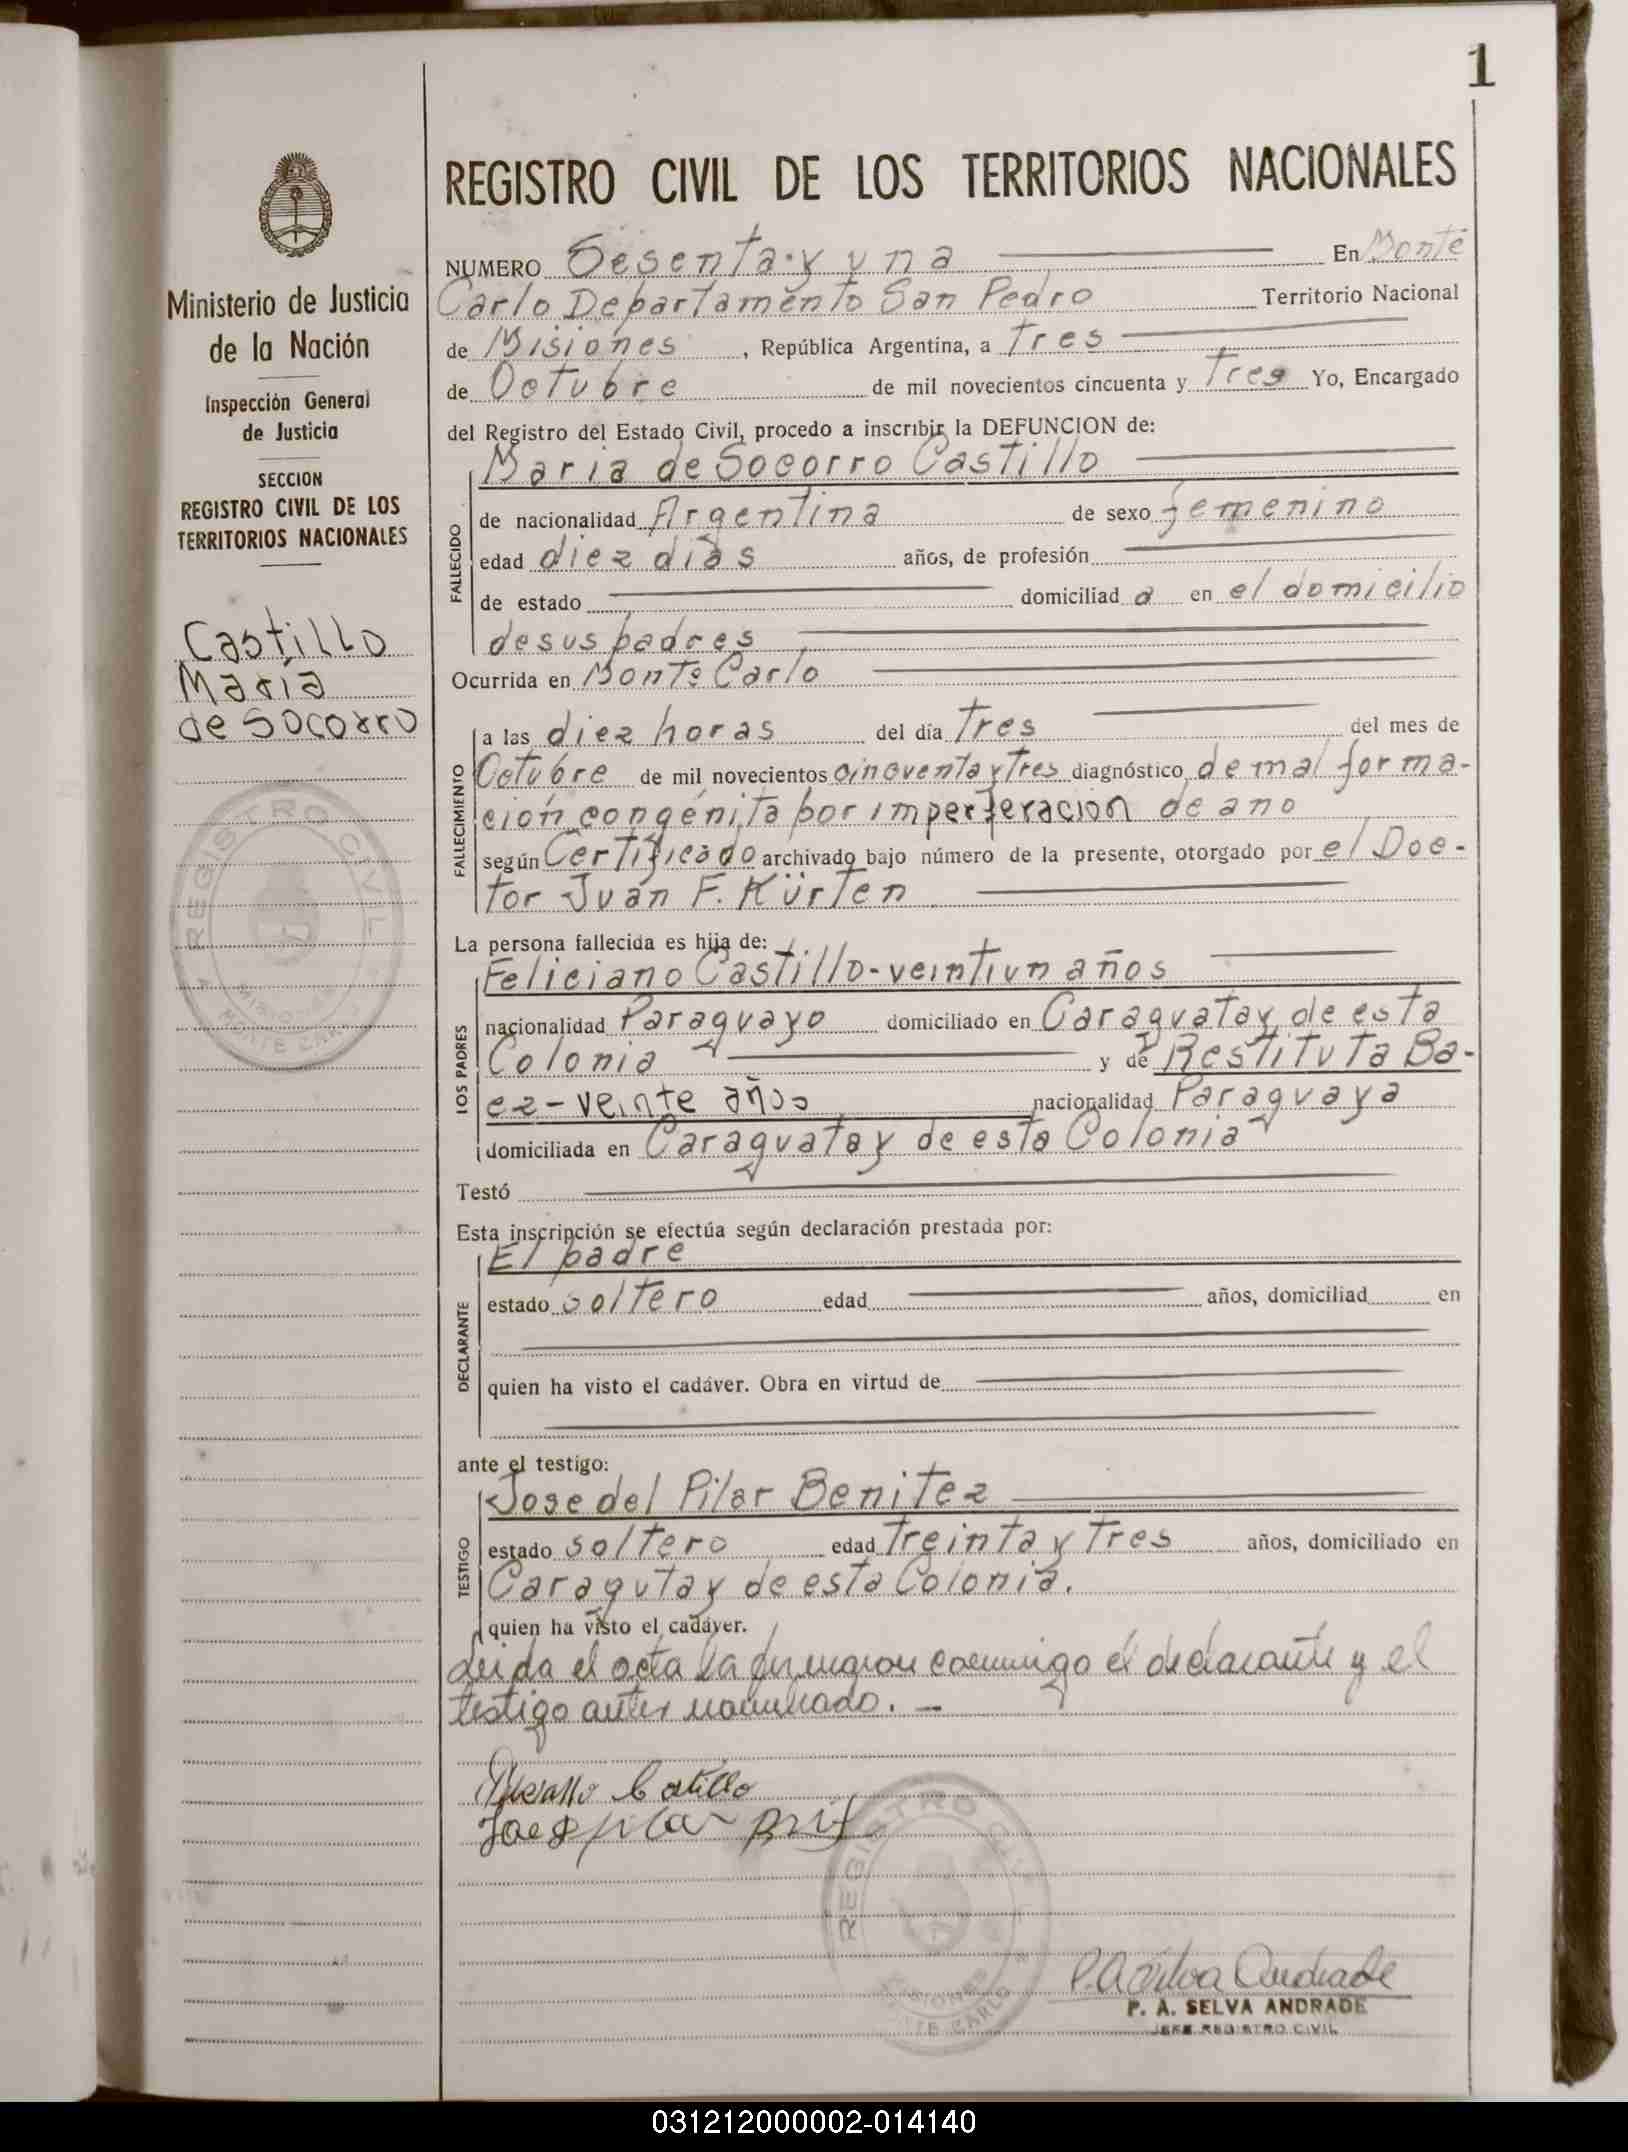 1
REGISTRO CIVIL DE LOS TERRITORIOS NACIONALES
Ministerio de Justicia
de la Nación
Inspección General
de Justicia
SECCION
REGISTRO CIVIL DE LOS
TERRITORIOS NACIONALES
Castillo
María
de Socorro
REGISTRO CIVIL
MISIONES
MONTE CARLO
NUMERO Sesenta y una En Monte
Carlo Departamento San Pedro Territorio Nacional
de Misiones, República Argentina, a tres
de Octubre de mil novecientos cincuenta y tres Yo, Encargado
del Registro del Estado Civil, procedo a inscribir la DEFUNCION de:
Maria de Socorro Castillo
FALLECIDO
de nacionalidad Argentina de sexo femenino
edad diez días años, de profesión
de estado domiciliad a en el domicilio
de sus padres
Ocurrida en Monte Carlo
FALLECIMIENTO
a las diez horas del día tres del mes de
Octubre de mil novecientos cincuenta y tres diagnóstico de mal forma-
ción congénita por imperferacion de ano
según Certificado archivado bajo número de la presente, otorgado por el Doc-
tor Juan F. Kürten
La persona fallecida es hija de:
LOS PADRES
Feliciano Castillo-veintiun años
nacionalidad Paraguayo domiciliado en Caraguatay de esta
Colonia y de Restituta Ba-
ez-veinte años nacionalidad Paraguaya
domiciliada en Caraguatay de esta Colonia
Testó
Esta inscripción se efectúa según declaración prestada por:
DECLARANTE
El padre
estado soltero edad años, domiciliad en
quien ha visto el cadáver. Obra en virtud de
ante el testigo:
TESTIGO
Jose del Pilar Benitez
estado soltero edad treinta y tres años, domiciliado en
Caragutay de esta Colonia.
quien ha visto el cadáver.
Leida el acta la firmaron conmigo el declarante y el
testigo antes nombrado. —
Castillo
Jose pilar
REGISTRO CIVIL
MISIONES
MONTE CARLO
P. A. Selva Andrade
P. A. SELVA ANDRADE
JEFE REGISTRO CIVIL
031212000002-014140